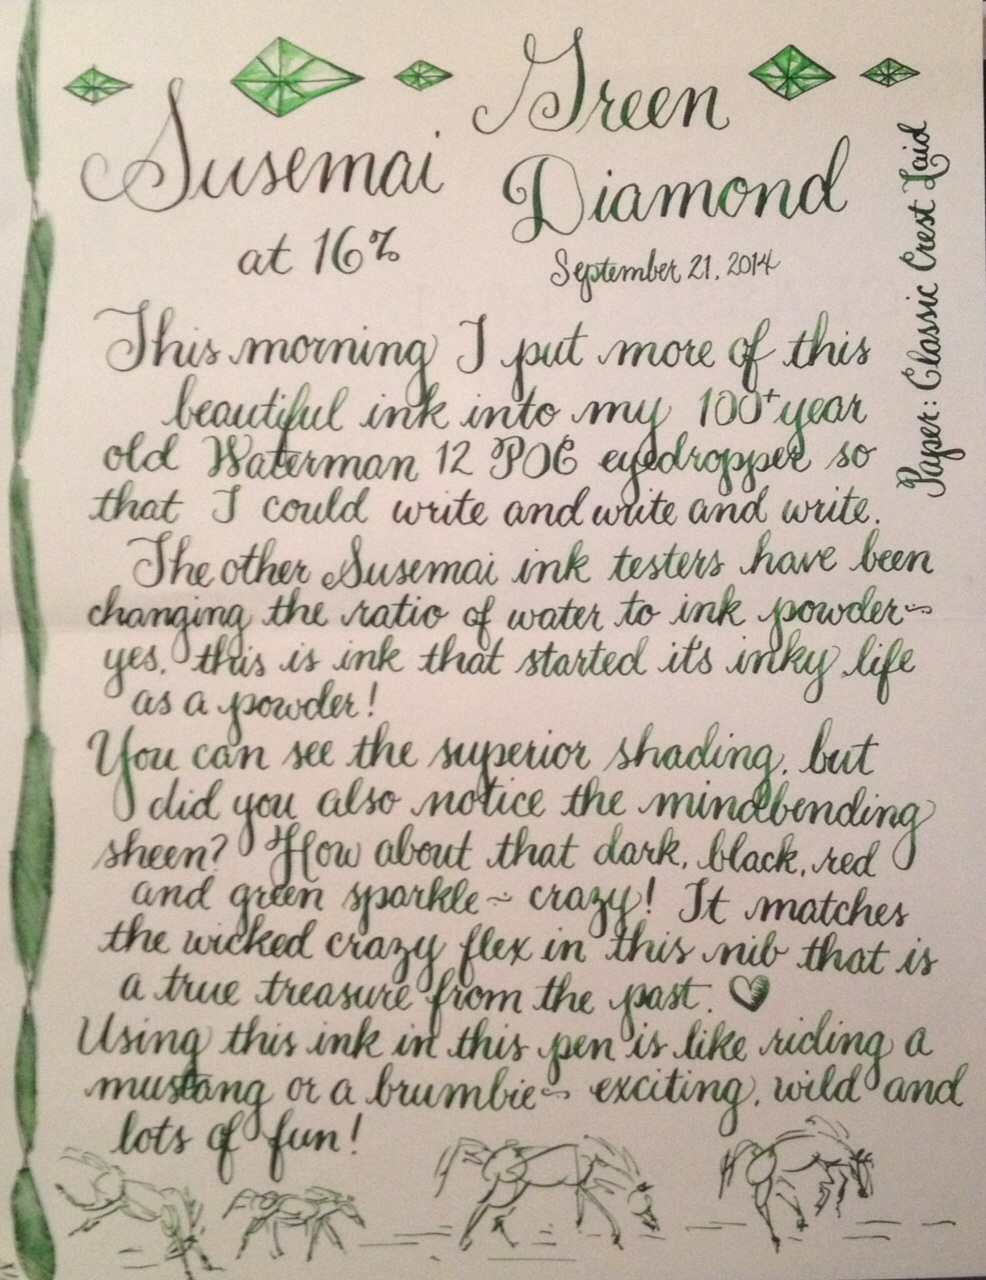 Susemai
at 16%
Green
Diamond
September 21, 2014
Paper: Classic Crest Laid
This morning I put more of this
beautiful ink into my 100+ year
old Waterman 12 POC eyedropper so
that I could write and write and write.
The other Susemai ink testers have been
changing the ratio of water to ink powder~
yes, this is ink that started it's inky life
as a powder!
You can see the superior shading, but
did you also notice the mindbending
sheen? How about that dark, black, red
and green sparkle~ crazy! It matches
the wicked crazy flex in this nib that is
a true treasure from the past. ♡
Using this ink in this pen is like riding a
mustang or a brumbie~ exciting, wild and
lots of fun!